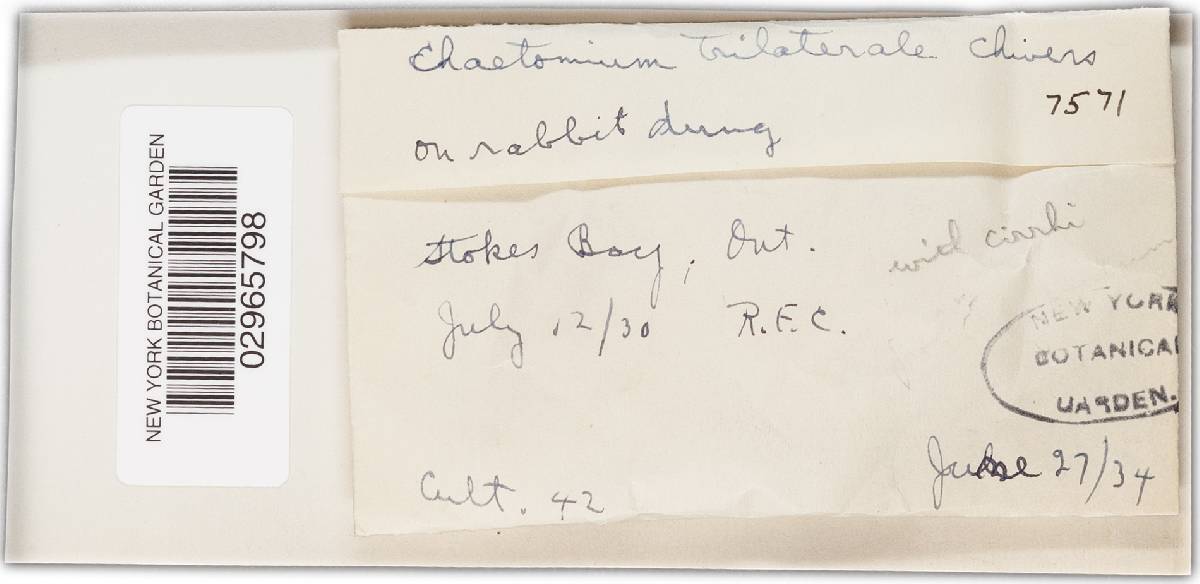 NEW YORK BOTANICAL GARDEN
02965798
Chaetomium trilaterale Chivers
7571
on rabbit dung
Stokes Bay, Ont.
with cirrhi
July 12/30 R.F.C.
NEW YORK
BOTANICAL
GARDEN.
Cult. 42
June 27/34